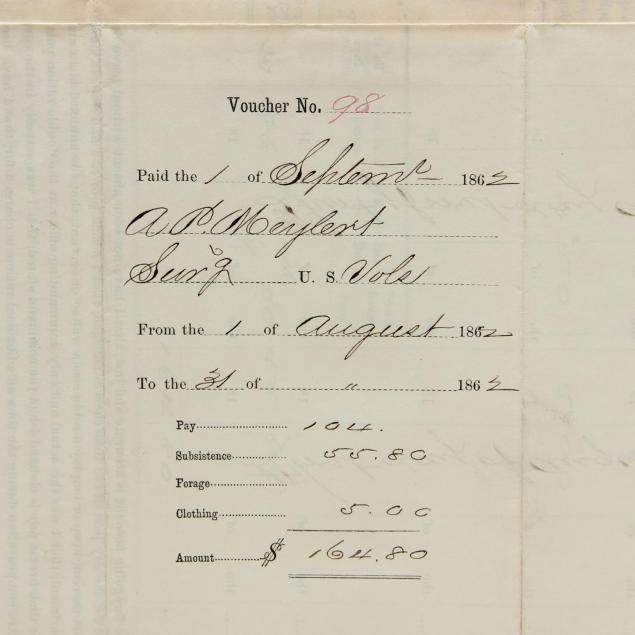 Voucher No. 98
Paid the 1 of Septemr 1862
A. P. Meylert
Surg U. S. Vols
From the 1 of August 1862
To the 31 of " 1862
Pay 104.
Subsistence 55.80
Forage
Clothing 5.00
Amount $ 164.80